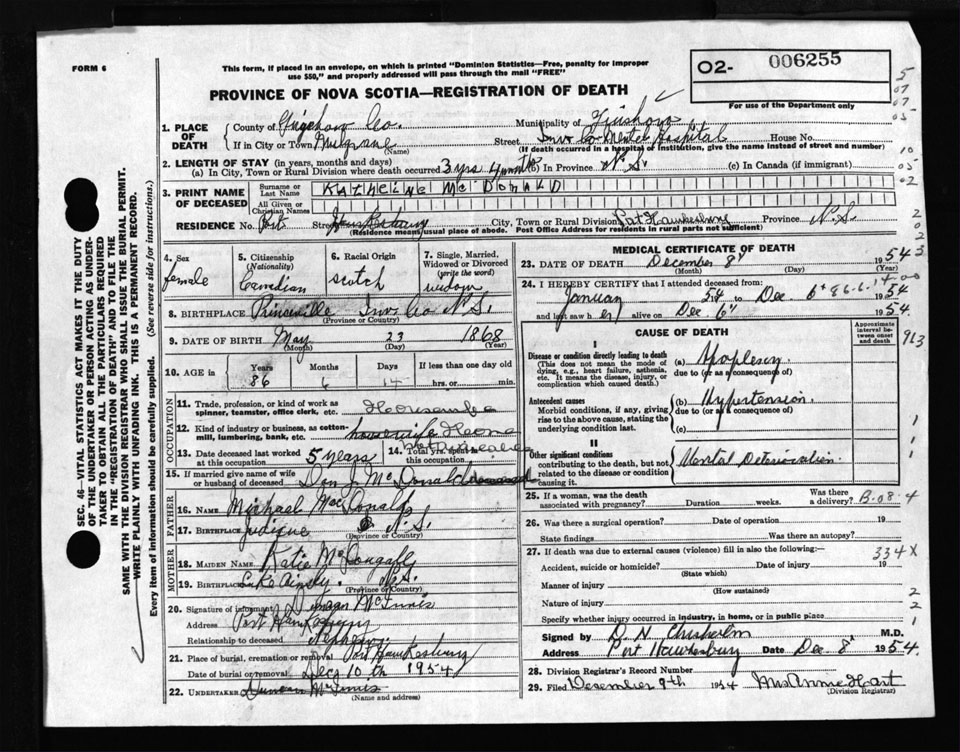 FORM 6
This form, if placed in an envelope, on which is printed "Dominion Statistics—Free, penalty for improper
use $50," and properly addressed will pass through the mail "FREE"
02- 006255
For use of the Department only
PROVINCE OF NOVA SCOTIA—REGISTRATION OF DEATH
1. PLACE OF DEATH
County of Co.
Municipality of
If in City or Town Mulgrave (Name)
Street Inv Co Mental Hospital House No.
(If death occurred in a hospital of institution, give the name instead of street and number)
2. LENGTH OF STAY (in years, months and days)
(a) In City, Town or Rural Division where death occurred 3 yrs 4 mnths (b) In Province N. S. (c) In Canada (if immigrant)
3. PRINT NAME OF DECEASED
Surname or Last Name KATHELINE McDONALD
All Given or Christian Names
RESIDENCE No. Port Street Hawkesbury City, Town or Rural Division Port Hawkesbury Province N.S.
(Residence means usual place of abode. Post Office Address for residents in rural parts not sufficient)
4. Sex female
5. Citizenship (Nationality) Canadian
6. Racial Origin scotch
7. Single, Married, Widowed or Divorced (write the word) widow
8. BIRTHPLACE Princeville Inv. Co N.S.
(Province or Country)
9. DATE OF BIRTH May 23 1868
(Month) (Day) (Year)
10. AGE in Years 86 Months 6 Days 14 If less than one day old hrs. or min.
OCCUPATION
11. Trade, profession, or kind of work as spinner, teamster, office clerk, etc.
12. Kind of industry or business, as cotton-mill, lumbering, bank, etc. housewife Home
13. Date deceased last worked at this occupation 5 years
14. Total yrs. spent in this occupation
15. If married give name of wife or husband of deceased Dan J. McDonald
FATHER
16. NAME Michael MacDonald
17. BIRTHPLACE Judique N.S.
(Province or Country)
MOTHER
18. MAIDEN NAME Katie
19. BIRTHPLACE Lake Ainsly. N.S.
20. Signature of informant Duncan McInnis
Address Port Hawkesbury
Relationship to deceased Nephew.
21. Place of burial, cremation or removal Port Hawkesbury
Date of burial or removal Dec 10 th 1954
22. UNDERTAKER Duncan McInnis
(Name and address)
MEDICAL CERTIFICATE OF DEATH
23. DATE OF DEATH December 8th 1954
(Month) (Day) (Year)
24. I HEREBY CERTIFY that I attended deceased from:
January 54 to Dec 6th 1954
and last saw her alive on Dec 6th 1954.
86-6-14
CAUSE OF DEATH
Approximate interval between onset and death
I
Disease or condition directly leading to death
(This does not mean the mode of dying, e.g., heart failure, asthenia, etc. It means the disease, injury, or complication which caused death.)
(a) Apoplexy.
due to (or as a consequence of)
Antecedent causes
Morbid conditions, if any, giving rise to the above cause, stating the underlying condition last.
(b) Hypertension.
due to (or as a consequence of)
(c)
II
Other significant conditions
contributing to the death, but not related to the disease or condition causing it.
Mental Deterioration.
25. If a woman, was the death associated with pregnancy? Duration weeks. Was there a delivery? B-08-4
26. Was there a surgical operation? Date of operation 19
State findings Was there an autopsy?
27. If death was due to external causes (violence) fill in also the following:-
334X
Accident, suicide or homicide? Date of injury 19
(State which)
Manner of injury
(How sustained)
Nature of injury
Specify whether injury occurred in industry, in home, or in public place
Signed by D. N. Chisholm M.D.
Address Port Hawkesbury Date Dec 8th 1954.
28. Division Registrar's Record Number
29. Filed Desember 9th 1954 Mrs Annie Hart
(Division Registrar)
SEC. 46—VITAL STATISTICS ACT MAKES IT THE DUTY
OF THE UNDERTAKER OR PERSON ACTING AS UNDER-
TAKER TO OBTAIN ALL THE PARTICULARS REQUIRED
IN THE "REGISTRATION OF DEATH" AND TO FILE THE
SAME WITH THE DIVISION REGISTRAR WHO SHALL ISSUE THE BURIAL PERMIT.
WRITE PLAINLY WITH UNFADING INK. THIS IS A PERMANENT RECORD.
Every item of information should be carefully supplied. (See reverse side for instructions.)
5
07
07
05
10
05
02
2
0
2
3
00
913
1
1
1
2
2
1